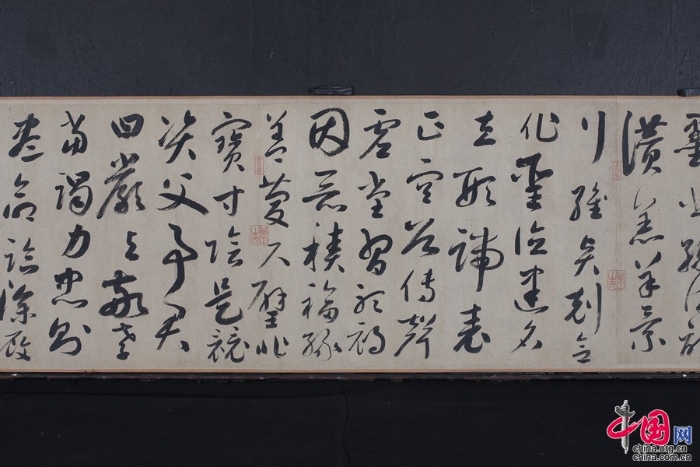 墨悲絲染詩
讚羔羊景
行維賢剋念
作聖德建名
立形端表
正空谷傳聲
虛堂習聽禍
因惡積福緣
善慶尺璧非
寶寸陰是競
資父事君
曰嚴與敬孝
當竭力忠則
盡命臨深履
中国网
china.org.cn
china.com.cn